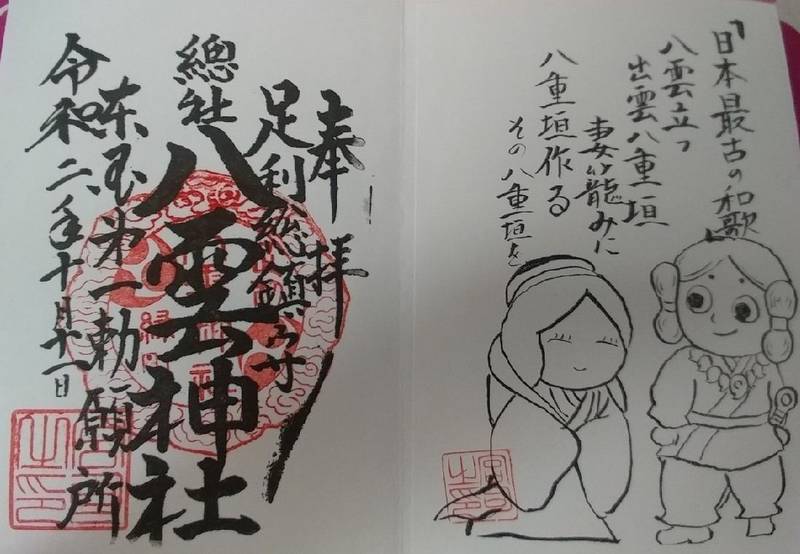 「日本最古の和歌」
八雲立つ
出雲八重垣
妻が籠みに
八重垣作る
その八重垣を
奉拝
足利総鎮守
總社
八雲神社
東国第一勅願所
令和 年十月十一日
宮司之印